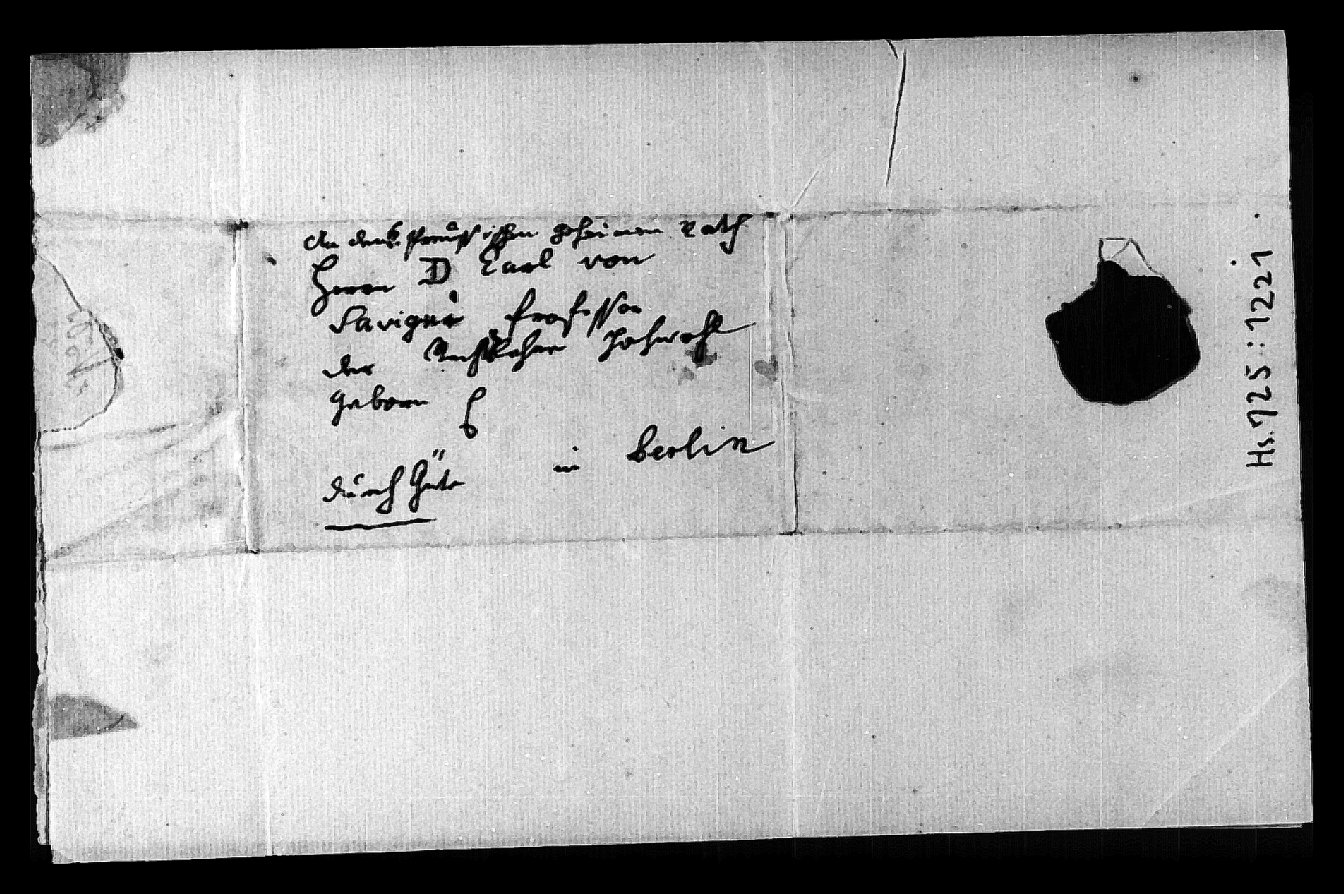 An den k. Preußischen geheimen Rath
Herrn D Carl von
Savigni Professor
der Rechtslehre Hochwohl
geborn
in Berlin
durch Güte
Hs. 725 : 1221